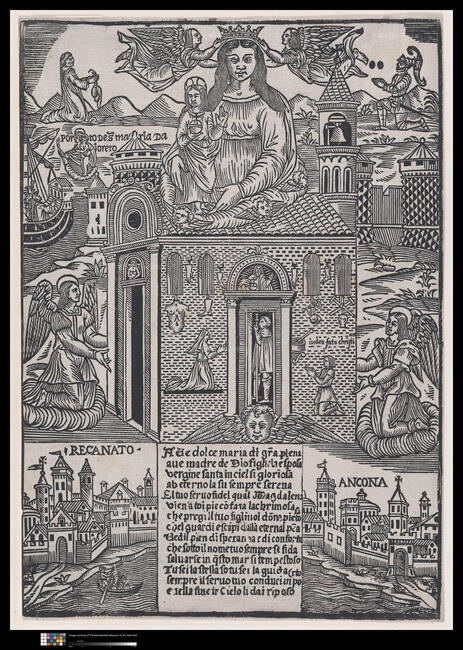 PORTO DE S MARIA DA
loreto
RECANATO
ANCONA
AVe dolce maria di gra plena
aue madre de Dio figlia e sposa
vergine santa in ciel si gloriosa
ab eterno fa sti sempre serena
El tuo seruo fidel qual Magdalena
vien a toi pie cõ faza lachrimosa
che pregi il tuo figliuol
chel guardi e scapi dalla eternal pẽa
Vedil pien di speranza e di conforto
che sotto il nome tuo sempre se fida
saluarse in q̃sto mar si tempestoso
Tu sei la stella tu sei la guida
sempre il seruo tuo conduci in po
e nella fine in Cielo li dai riposo